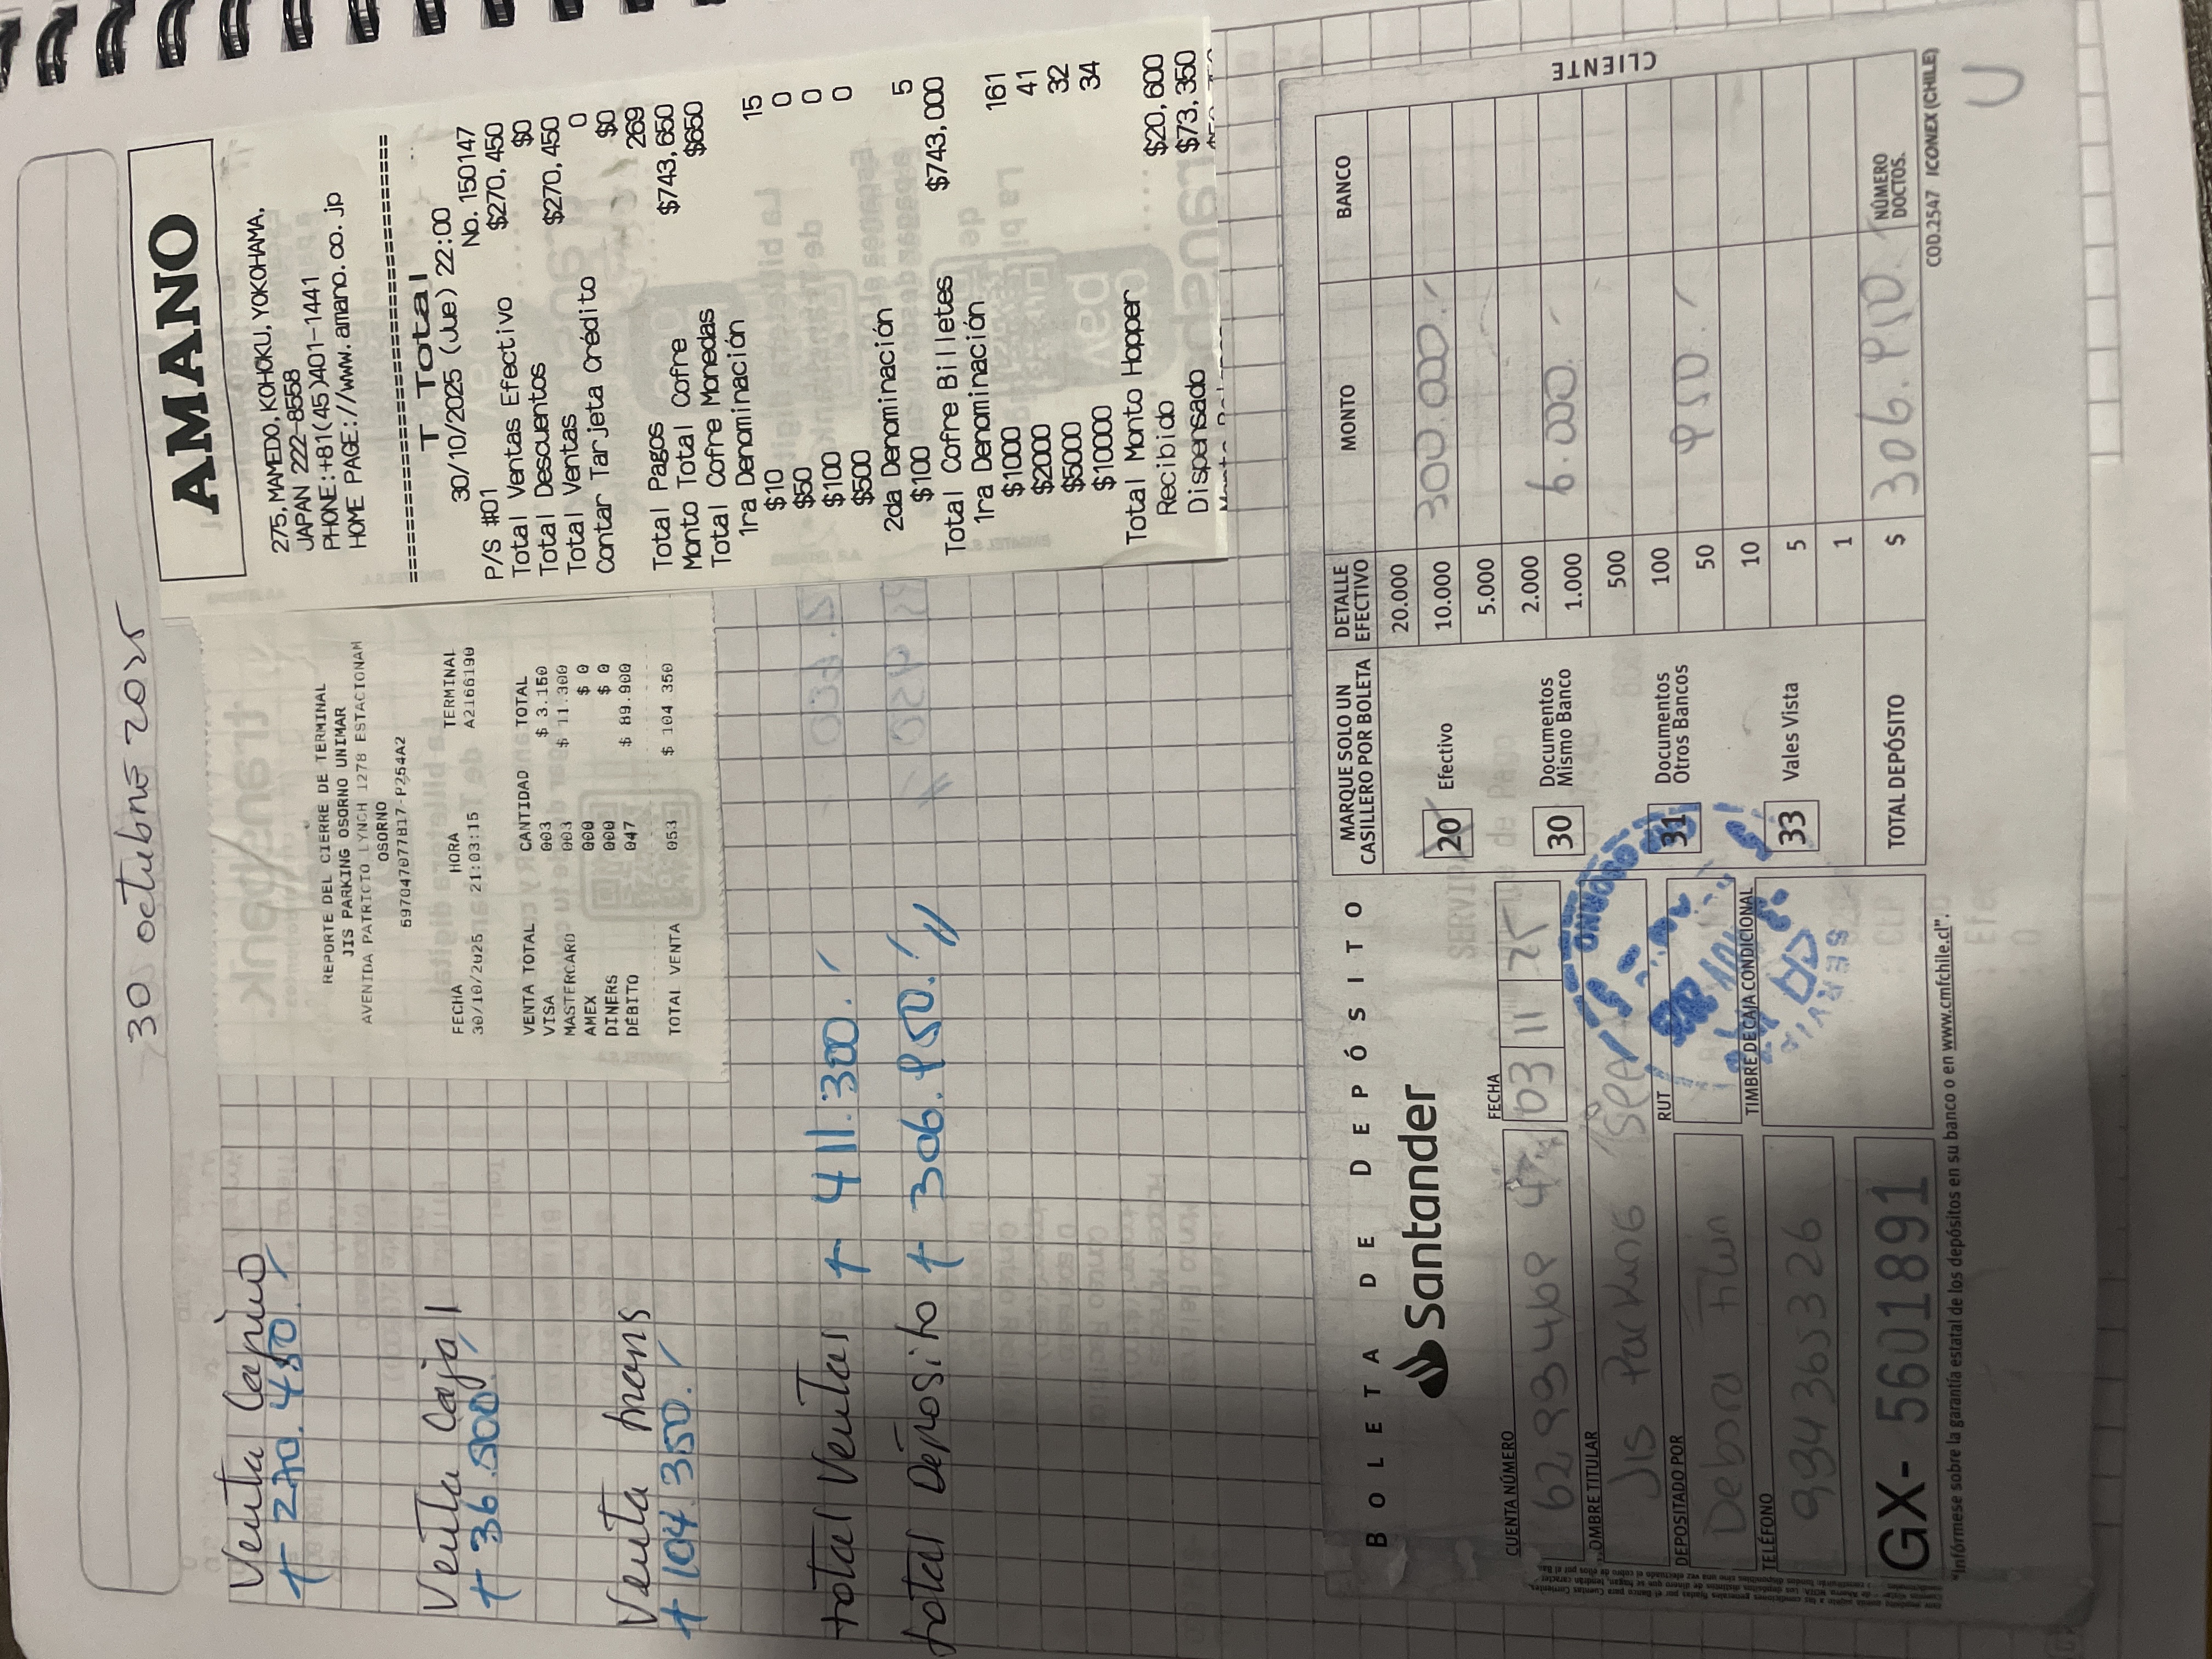 30 octubre 2025
Venta Cajero
+ 270.450.
Venta Caja 1
+ 36.500.
Venta trans
+ 104.350.
total Ventas + 411.300.
total Deposito + 306.950.
REPORTE DEL CIERRE DE TERMINAL
JIS PARKING OSORNO UNIMAR
AVENIDA PATRICIO LYNCH 1278 ESTACIONAM
OSORNO
597047077817-P254A2
FECHA HORA TERMINAL
30/10/2025 21:03:15 A2166190
VENTA TOTAL CANTIDAD TOTAL
VISA 003 $ 3.150
MASTERCARD 003 $ 11.300
AMEX 000 $ 0
DINERS 000 $ 0
DEBITO 047 $ 89.900
TOTAL VENTA 053 $ 104 350
AMANO
275, MAMEDO, KOHOKU, YOKOHAMA,
JAPAN 222-8558
PHONE:+81(45)401-1441
HOME PAGE://www.amano.co.jp
T Total
30/10/2025 (Jue) 22:00
P/S #01 No. 150147
Total Ventas Efectivo $270,450
Total Descuentos $0
Total Ventas $270,450
Contar Tarjeta Crédito 0
$0
Total Pagos 269
Monto Total Cofre $743,650
Total Cofre Monedas $650
1ra Denominación
$10 15
$50 0
$100 0
$500 0
2da Denominación
$100 5
Total Cofre Billetes $743,000
1ra Denominación
$1000 161
$2000 41
$5000 32
$10000 34
Total Monto Hopper
Recibido $20,600
Dispensado $73,350
BOLETA DE DEPÓSITO
Santander
CUENTA NÚMERO
FECHA
03 11 25
NOMBRE TITULAR
Jis Parking
RUT
DEPOSITADO POR
Debora
TIMBRE DE CAJA CONDICIONAL
TELÉFONO
934365326
GX- 5601891
MARQUE SOLO UN
CASILLERO POR BOLETA
20 Efectivo
30 Documentos
Mismo Banco
31 Documentos
Otros Bancos
33 Vales Vista
DETALLE
EFECTIVO MONTO BANCO
20.000
10.000 300.000.
5.000
2.000
1.000 6.000.
500
100
50 950.
10
5
1
TOTAL DEPÓSITO $ 306.950. NÚMERO
DOCTOS.
CLIENTE
COD.2547 ICONEX (CHILE)
"Infórmese sobre la garantía estatal de los depósitos en su banco o en www.cmfchile.cl".